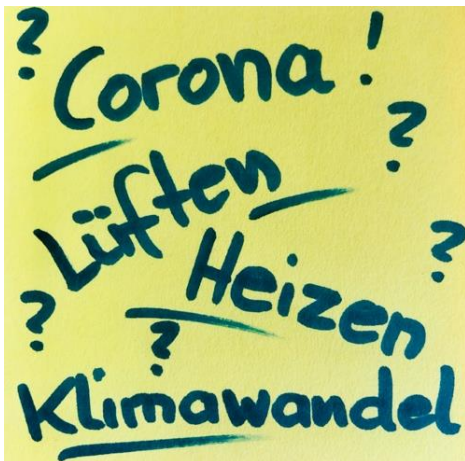 ?
Corona!
?
Lüften
?
Heizen
?
?
Klimawandel